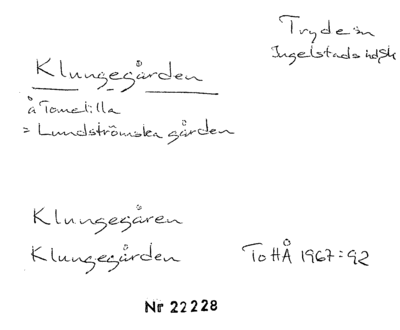 Tryde sn
Ingelstads hd Sk
Klungegården
å Tomelilla
= Lundströmska gården
Klungegåren
Klungegården ToHÅ 1967:92
Nr 22228